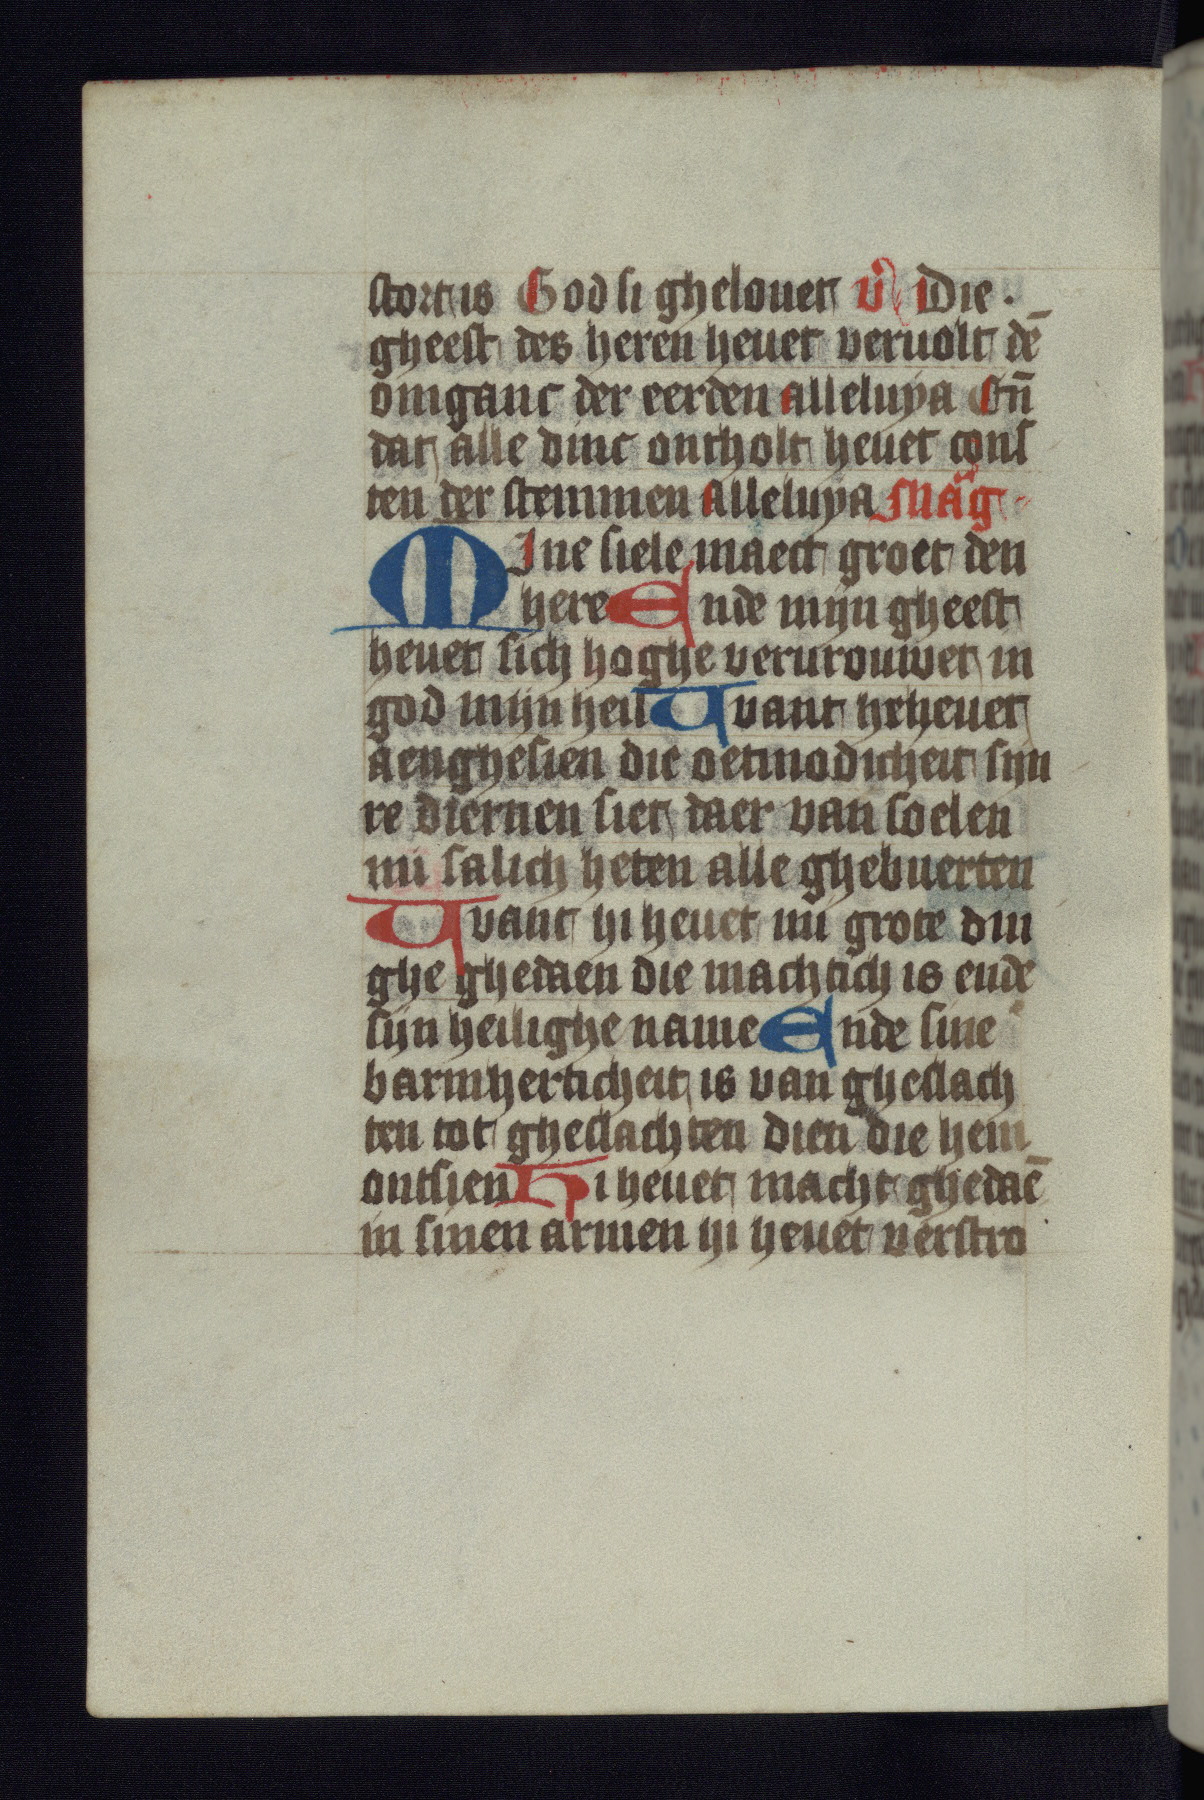 stort is God si ghelouet v̾ Die·
gheest des heren heuet veruolt dē
omganc der eerden alleluya Eñ
dat alle dinc ontholt heuet cons
ten der stemmen alleluya Mag̾
MIne siele maect groet den
here Ende mijn gheest
heuet sich hoghe verurouwet in
god mijn heil Want hi heuet
aenghesien die oetmodicheit sijn
re diernen siet daer van soelen
mi salich heten alle ghebuerten
Want hi heuet mi grote din
ghe ghedaen die machtich is ende
sijn heilighe name Ende sine
barmherticheit is van gheslach
ten tot gheslachten dien die hem
ontsien Hi heuet macht ghedaē
in sinen armen hi heuet verstro